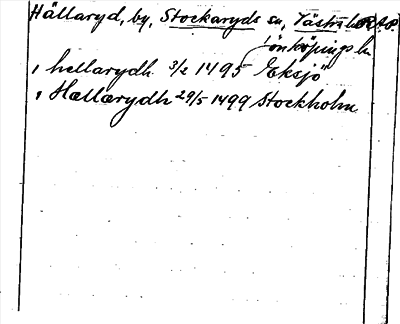 Hällaryd, by, Stockaryds sn, Västra hd RAP.
Jönköpings ln
i hellarydh 3/2 1495 Eksjö
i Hællærydh 29/5 1499 Stockholm